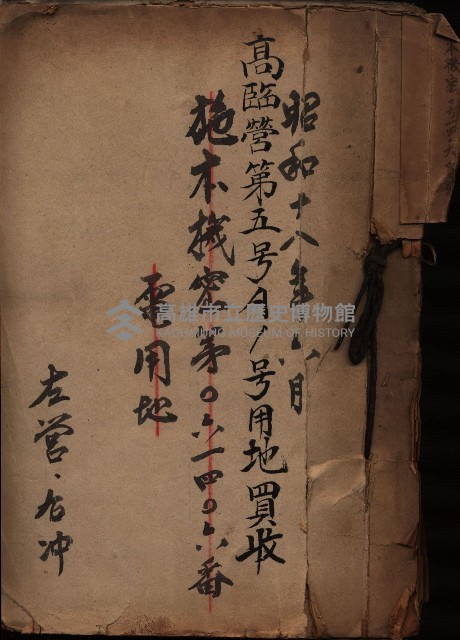 昭和十八年六月
高臨營第五号ノ八号用地買收
施本機密第〇六一四〇六番
電用地
左营、右冲
高雄市立歷史博物館
KAOHSIUNG MUSEUM OF HISTORY